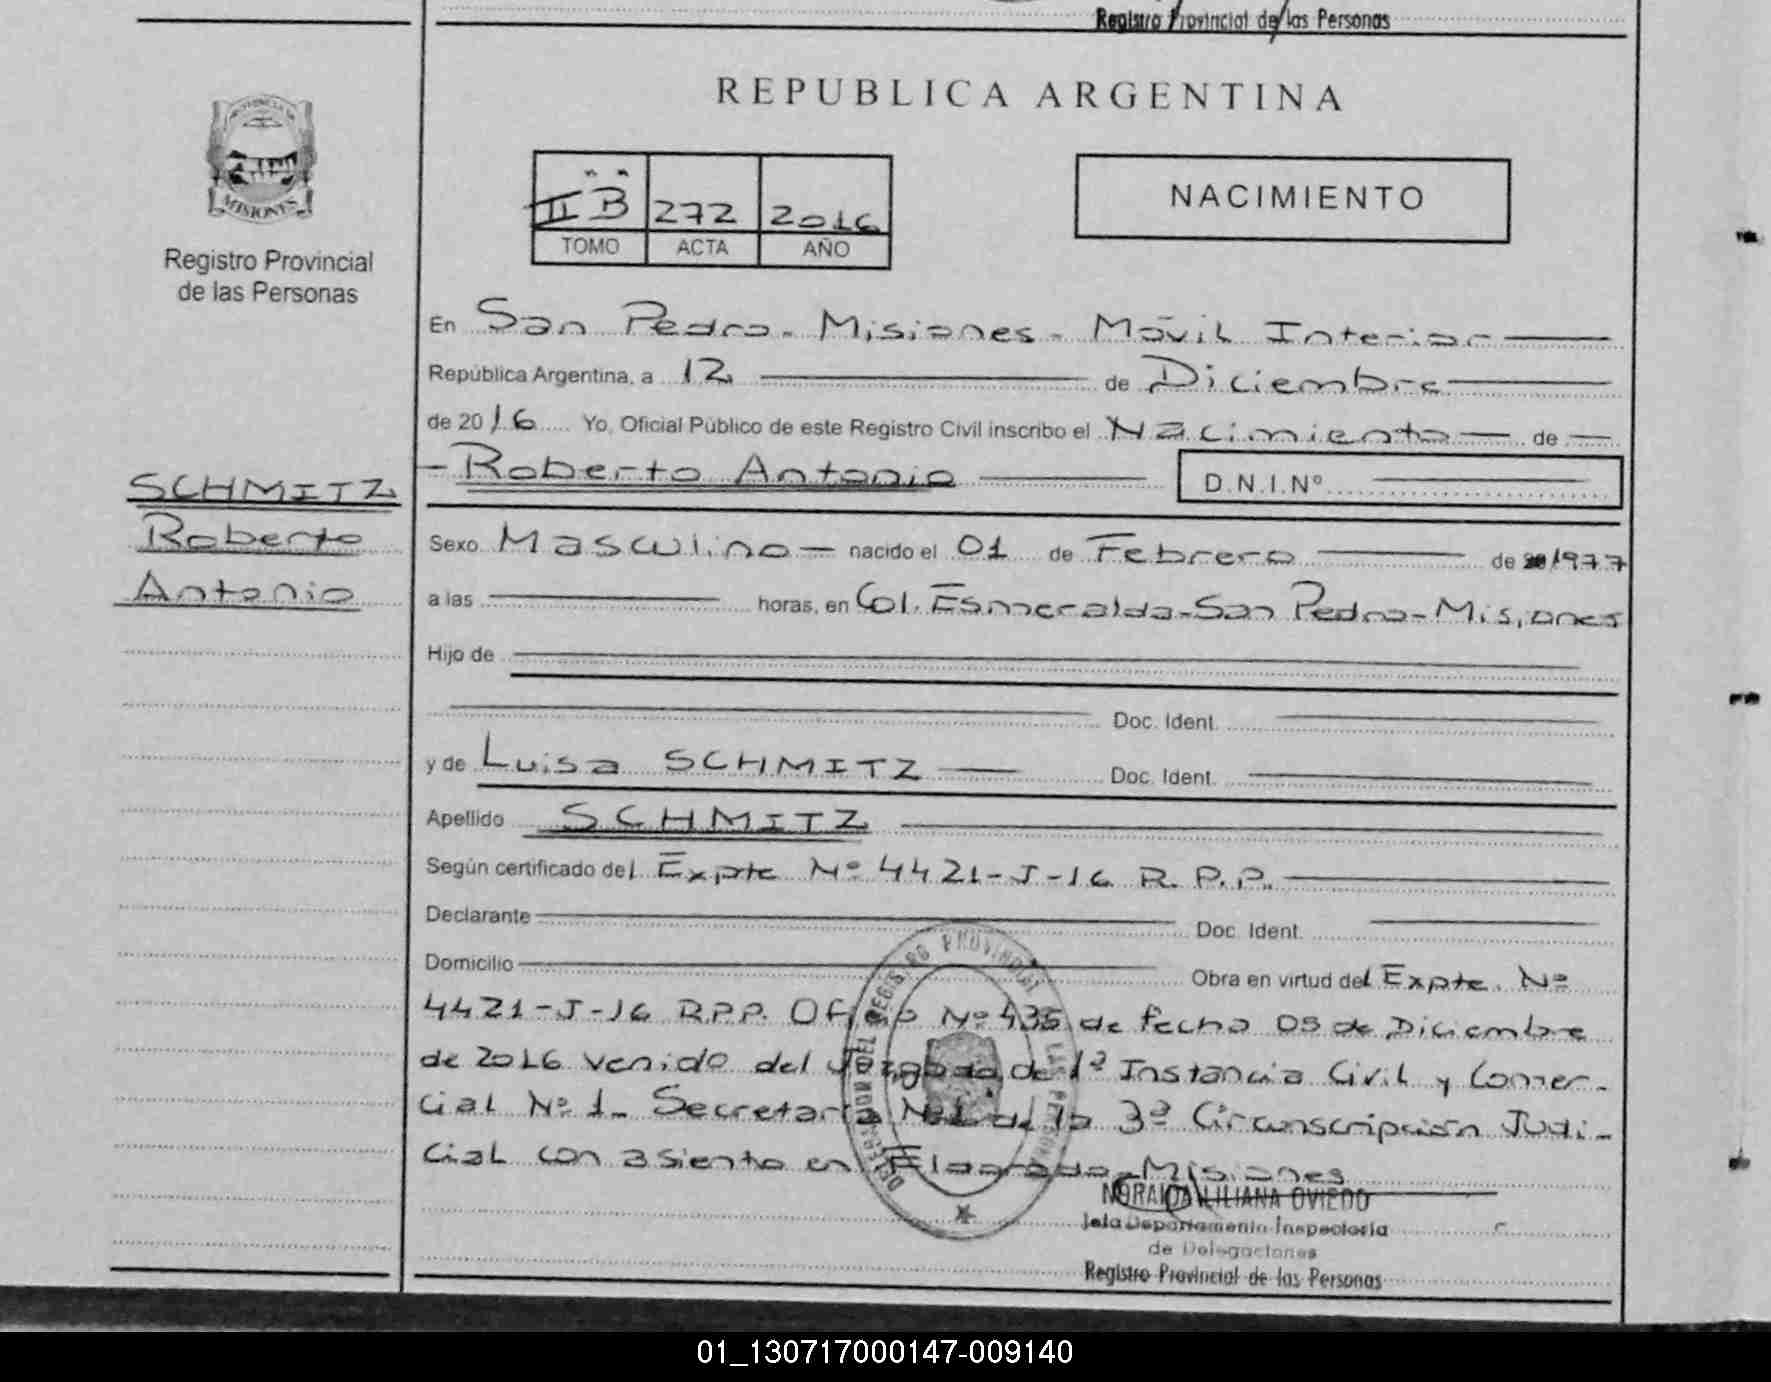 Registro Provincial de las Personas
REPUBLICA ARGENTINA
MISIONES
Registro Provincial
de las Personas
II "B" 272 2016
TOMO ACTA AÑO
NACIMIENTO
En San Pedro - Misiones - Móvil Interior
República Argentina, a 12 de Diciembre
de 2016 Yo, Oficial Público de este Registro Civil inscribo el Nacimiento de
Roberto Antonio D.N.I.Nº
SCHMITZ
Roberto
Antonio
Sexo Masculino nacido el 01 de Febrero de 1977
a las horas, en Col. Esmeralda-San Pedro-Misiones
Hijo de
Doc. Ident.
y de Luisa SCHMITZ Doc. Ident.
Apellido SCHMITZ
Según certificado del Expte Nº 4421-J-16 R.P.P.
Declarante Doc. Ident.
Domicilio Obra en virtud del Expte. Nº
4421-J-16 R.P.P. Oficio Nº 435 de fecha 05 de Diciembre
de 2016 venido del Juzgado de 1ª Instancia Civil y Comer-
cial Nº 1- Secretaría Nº 1 de la 3ª Circunscripción Judi-
cial con asiento en Eldorado-Misiones
NORAIDA LILIANA OVIEDO
Jefa Departamento Inspectoría
de Delegaciones
Registro Provincial de las Personas
01_130717000147-009140